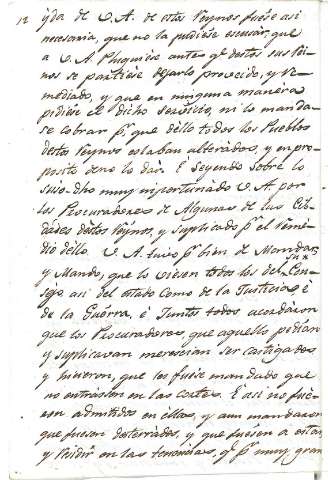 12 yda de V.A. de estos Reynos fuese asi
necesaria, que no la pudiese escusar, que
a V.A. Pluguiese antes qe destos sus Rei-
nos se partiese dejarlo proveido, y re-
mediado, y que en ninguna manera
pidiese el dicho servicio, ni lo manda-
se cobrar pr. que dello todos los Pueblos
destos Reynos estaban alterados, y en pro-
posito de no lo dar. E seyendo sobre lo
suso dho muy inportunado V.A. por
los Procuradores de Algunas de las Cib-
dades destos Reynos, y suplicado pr. el Reme-
dio dello. V.A. tuvo pr. bien de Mandar,
y Mando, que lo viesen todos los del su Con-
sejo asi del estado como de la Justicia e
de la Guerra, e Juntos todos acordaron
que los Procuradores, que aquello pedian
y suplicavan merescian ser castigados
y hicieron, que les fuese mandado que
no entrasen en las cortes. E asi no fue-
son admitidos en ellas, y aun mandaron
que fuesen desterrados, y que fuesen a estar,
y Residir en las tenencias, qe. pr. muy gran